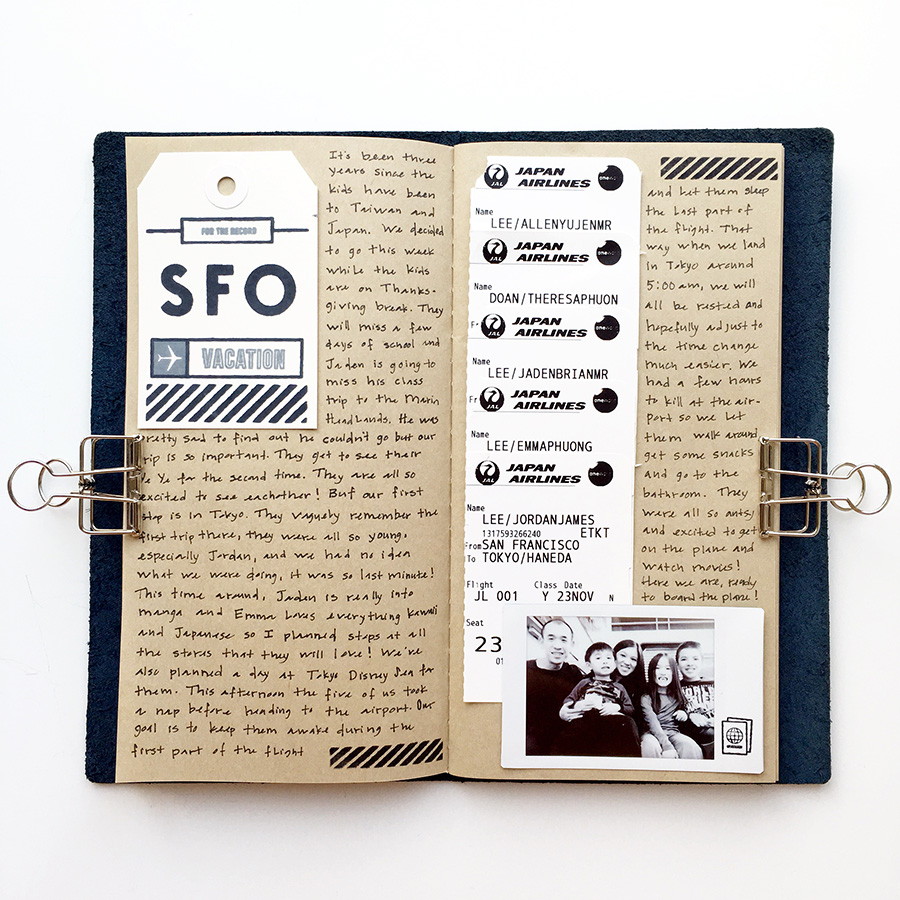 FOR THE RECORD
SFO
VACATION
It's been three
years since the
kids have been
to Taiwan and
Japan. We decided
to go this week
while the kids
are on Thanks-
giving break. They
will miss a few
days of school and
Jaden is going to
miss his class
trip to the Marin
Headlands. He was
pretty sad to find out he couldn't go but our
trip is so important. They get to see their
Ye Ye for the second time. They are all so
excited to see eachother! But our first
stop is in Tokyo. They vaguely remember the
first trip there, they were all so young,
especially Jordan, and we had no idea
what we were doing, it was so last minute!
This time around, Jaden is really into
manga and Emma loves everything kawaii
and Japanese so I planned stops at all
the stores that they will love! We've
also planned a day at Tokyo Disney Sea for
them. This afternoon the five of us took
a nap before heading to the airport. Our
goal is to keep them awake during the
first part of the flight
JAL JAPAN AIRLINES
Name
LEE/ALLENYUJENMR
JAL JAPAN AIRLINES
Name
DOAN/THERESAPHUON
Fr
JAL JAPAN AIRLINES
Name
LEE/JADENBRIANMR
Fr
JAL JAPAN AIRLINES
Name
LEE/EMMAPHUONG
JAL JAPAN AIRLINES
Name
LEE/JORDANJAMES
1317593266240 ETKT
From SAN FRANCISCO
To TOKYO/HANEDA
Flight Class Date
JL 001 Y 23NOV N
Seat
23
and let them sleep
the last part of
the flight. That
way when we land
in Tokyo around
5:00am, we will
all be rested and
hopefully adjust to
the time change
much easier. We
had a few hours
to kill at the air-
port so we let
them walk around
get some snacks
and go to the
bathroom. They
were all so antsy
and excited to get
on the plane and
watch movies!
Here we are, ready
to board the plane!